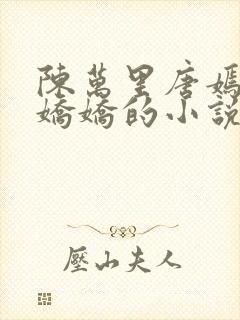 陳萬里唐嫣
嬌嬌的小說
壓山夫人